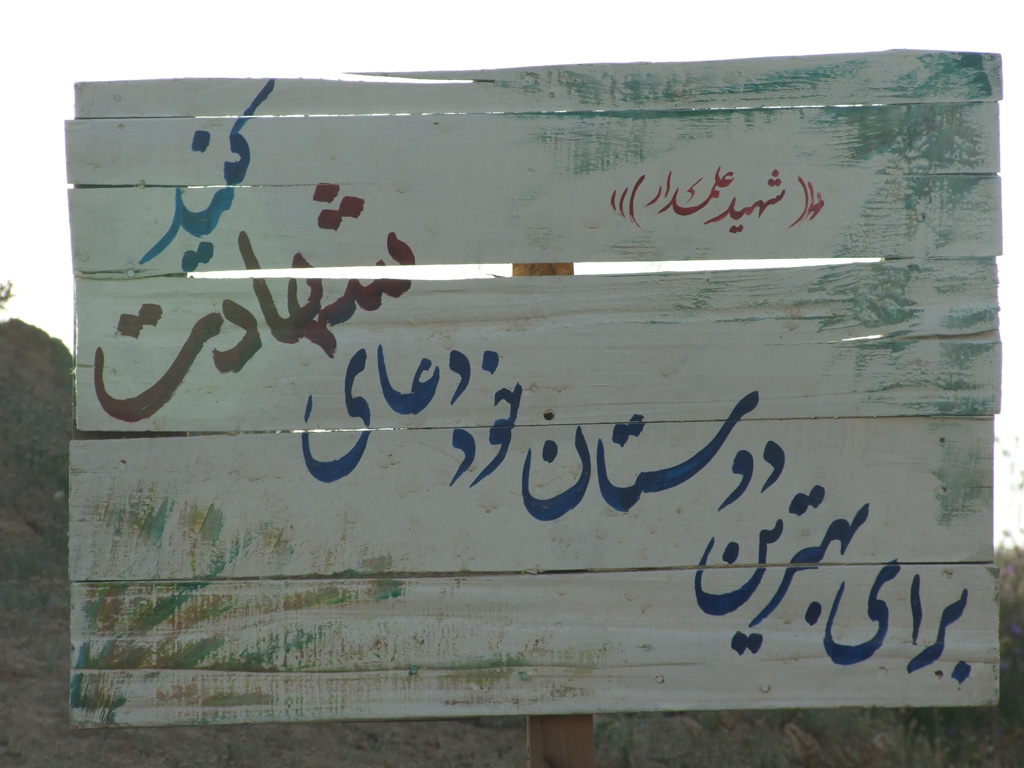 ((شهید علمدار))
برای بهترین دوستان خود دعای
شهادت
کنید